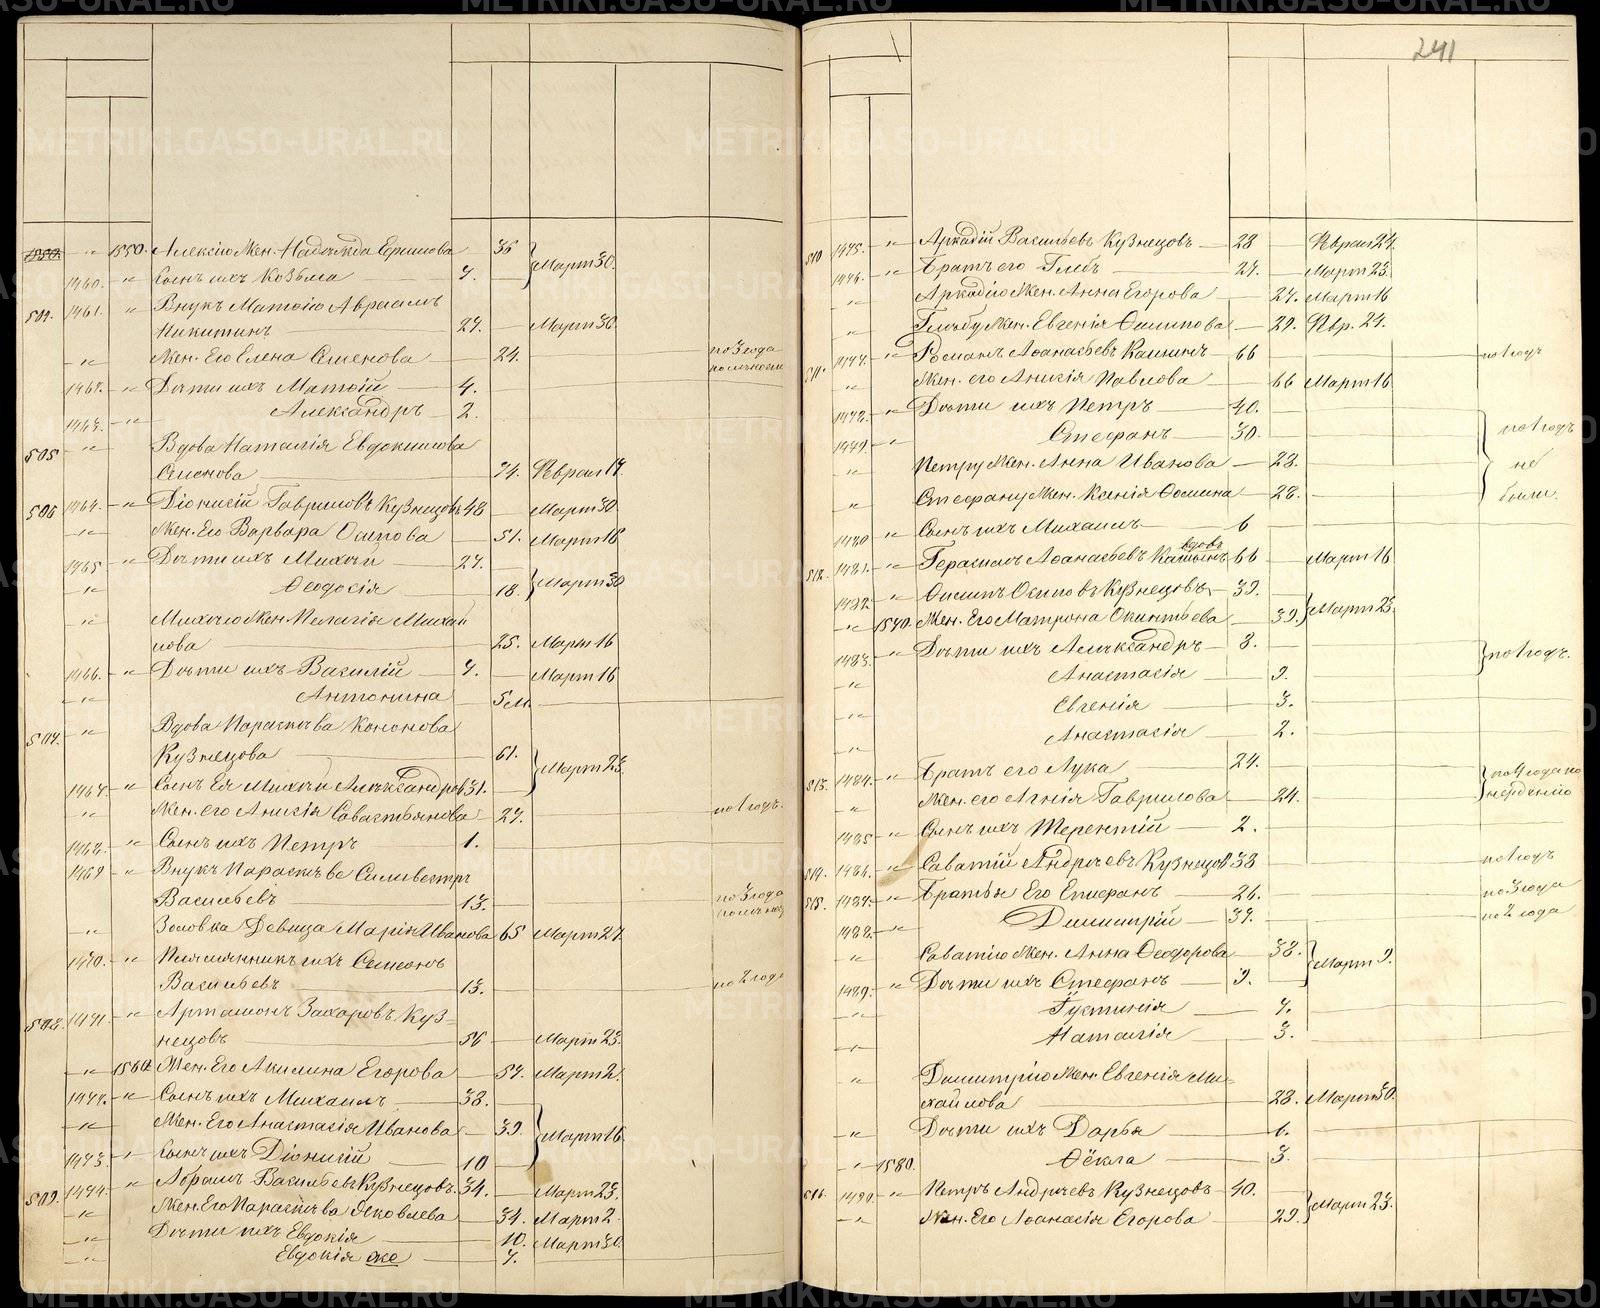 " 1550. Алексію Жен. Надежда Ермилова 36
1460. " Сынъ ихъ Козьма 7. Март 30.
504. 1461. " Внукъ Матѳію Авраамъ
Никитинъ 27. Март 30.
" Жен. Его Елена Семенова 24. по 3 года
1462. " Дѣти ихъ Матѳій 4.
1463. " Александръ 2.
505 " Вдова Наталія Евдокимова
Семенова 74. Феврал 17.
506 1464. " Діонисій Гавриловъ Кузнецовъ 48 Март 30
" Жен. Его Варвара Осипова 51. Март 18
1465 " Дѣти ихъ Михей 27.
" Ѳеодосія 18. Март 30
" Михею Жен. Пелагія Михай
лова 25. Март 16
1466. " Дѣти ихъ Василій 7. Март 16
" Антонина 5 м
507. " Вдова Параскева Кононова
Кузнецова 61. Март 23.
1467. " Сынъ Ея Михей Александров 31.
" Жен. его Анисія Савастьянова 27. по 1 годъ.
1468. " Сынъ ихъ Петръ 1.
1469 " Внукъ Параскеве Силивестръ
Васильевъ 13. по 3 года
" Золовка Девица Марія Иванова 65 Март 27.
1470. " Племянникъ ихъ Симеонъ
Васильевъ 13. по 2 года
508. 1471. " Артамонъ Захаровъ Куз-
нецовъ 56 Март 23.
" 1560. Жен. Его Акилина Егорова 57. Март 2.
1472. " Сынъ ихъ Михаилъ 38.
" Жен. Его Анастасія Иванова 39. Март 16.
1473. " Сынъ ихъ Діонисій 10
509. 1474. " Абрамъ Васильевъ Кузнецовъ. 34. Март 23.
" Жен. Его Параскева Яковлева 34. Март 2.
" Дѣти ихъ Евдокія 10. Март 30.
" Евдокія же 7.
241
510 1475. " Аркадій Васильевъ Кузнецовъ 28 Феврал 24.
1476. " Братъ его Глебъ 27. Март 23.
" Аркадію Жен. Анна Егорова 27. Март 16
" Глебу Жен. Евгенія Филипова 29. Февр. 24.
511. 1477. " Романъ Аѳанасьевъ Кашинъ 66 по 1 годъ
" Жен. его Анисія Павлова 66 Март 16.
1478. " Дѣти ихъ Петръ 40. по 1 годъ
1479. " Стефанъ 30.
" Петру Жен. Анна Иванова 28. не
" Стефану Жен. Ксенія Фомина 28. были.
1480 " Сынъ ихъ Михаилъ 6
вдовъ
512. 1481. " Герасимъ Аѳанасьевъ Кашинъ 66 Март 16
1482. " Филипъ Осиповъ Кузнецовъ 39.
" 1570. Жен. Его Матрона Окинтьева 39. Март 23.
1483. " Дѣти ихъ Александръ 8. по 1 годъ.
" Анастасія 9.
" Евгенія 3.
" Анастасія 2.
513. 1484. " Братъ его Лука 24. по 4 года по
" Жен. его Агнія Гаврилова 24. нерденію
1485 " Сынъ ихъ Терентій 2.
514. 1486. " Саватій Андреевъ Кузнецов 38 по 1 годъ
515. 1487. " Братья Его Стефанъ 26. по 3 года
1488. " Димитрій 37. по 2 года
" Саватію Жен. Анна Ѳеодорова 38. Март 9.
1489. " Дѣти ихъ Стефанъ 9.
" Густинія 7.
" Наталія 3.
" Димитрію Жен. Евгенія Ми-
хайлова 28. Март 30.
" Дѣти ихъ Дарья 6.
" 1580. Ѳёкла 3.
516. 1490. " Петръ Андреевъ Кузнецовъ 40.
" Жен. Его Аѳанасія Егорова 29. Март 23.
METRIKI.GASO-URAL.RU